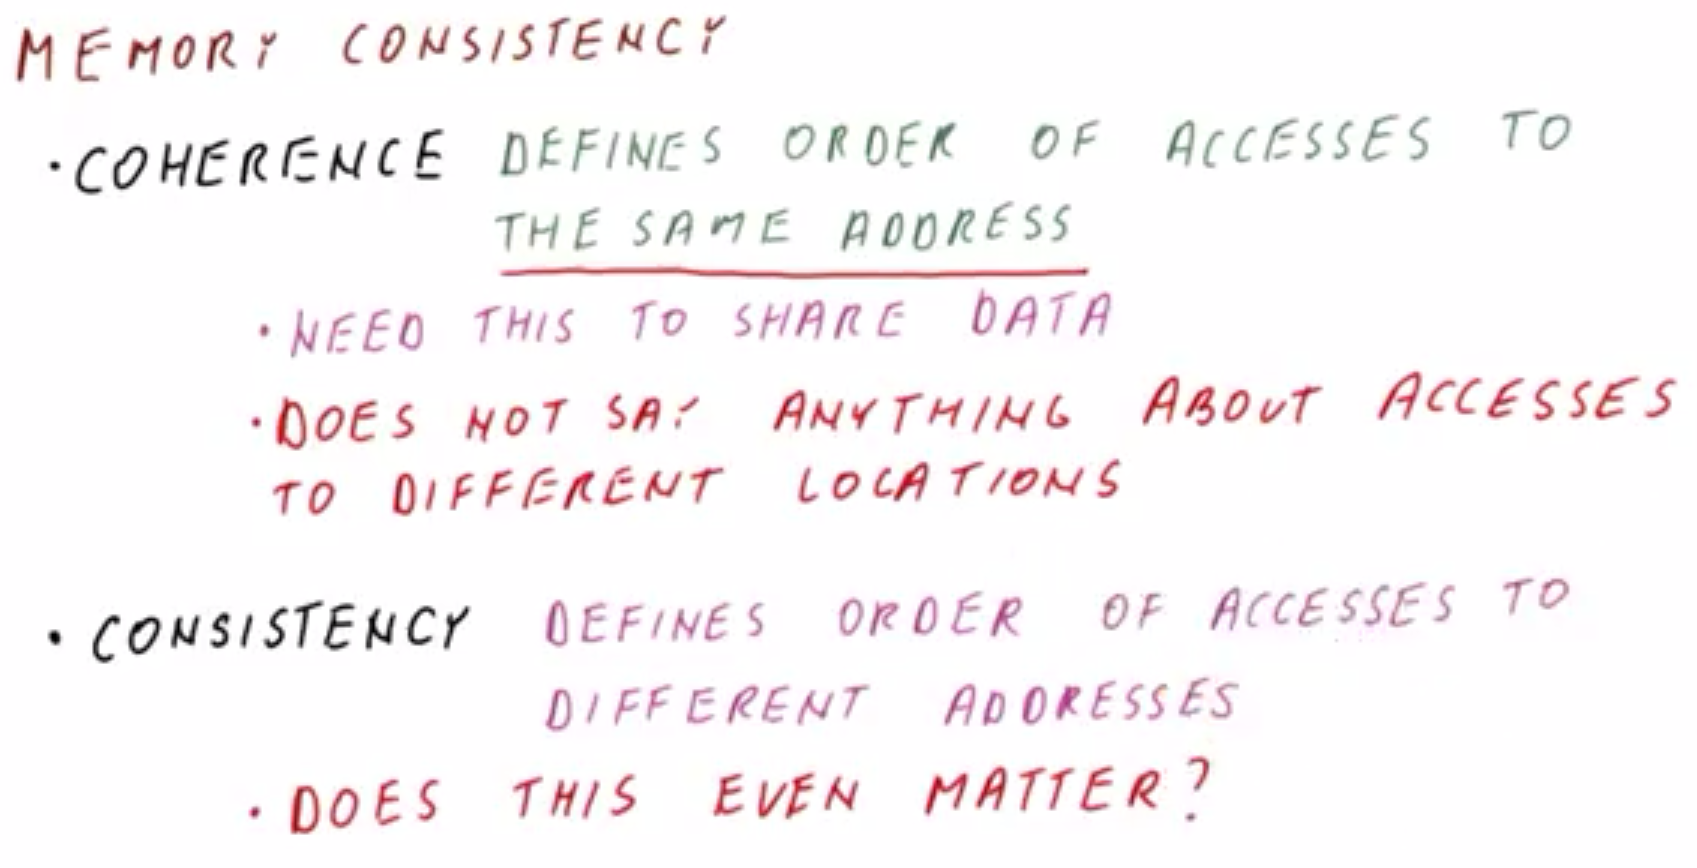 MEMORY CONSISTENCY
· COHERENCE DEFINES ORDER OF ACCESSES TO
THE SAME ADDRESS
· NEED THIS TO SHARE DATA
· DOES NOT SAY ANYTHING ABOUT ACCESSES
TO DIFFERENT LOCATIONS
· CONSISTENCY DEFINES ORDER OF ACCESSES TO
DIFFERENT ADDRESSES
· DOES THIS EVEN MATTER?